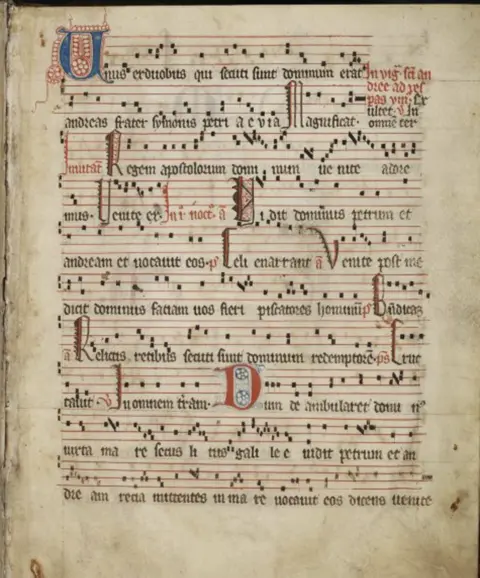 Unus erduobus qui secuti sunt dominum erat In vigˢ scī an
dree ad ves
pas
andreas frater symonis petri a e v i a Magnificat.
In
omnē ter
Invitatˢ Regem apostolorum domi num ve nite adore
mus. Venite ex. In i noctˢ ā Vidit dominus petrum et
andream et vocavit eos. ps Celi enarrant ā Venite post me
dicit dominus faciam vos fieri piscatores hominū ps Bñdicaz
ā Relictis retibus secuti sunt dominum redemptorē. ps Eruc
tavit V In omnem trām. Dum de ambularet domi nˢ
iuxta ma re secus li tus gali le e vidit petrum et an
dre am recia mittentes in ma re vocavit eos dicens venite